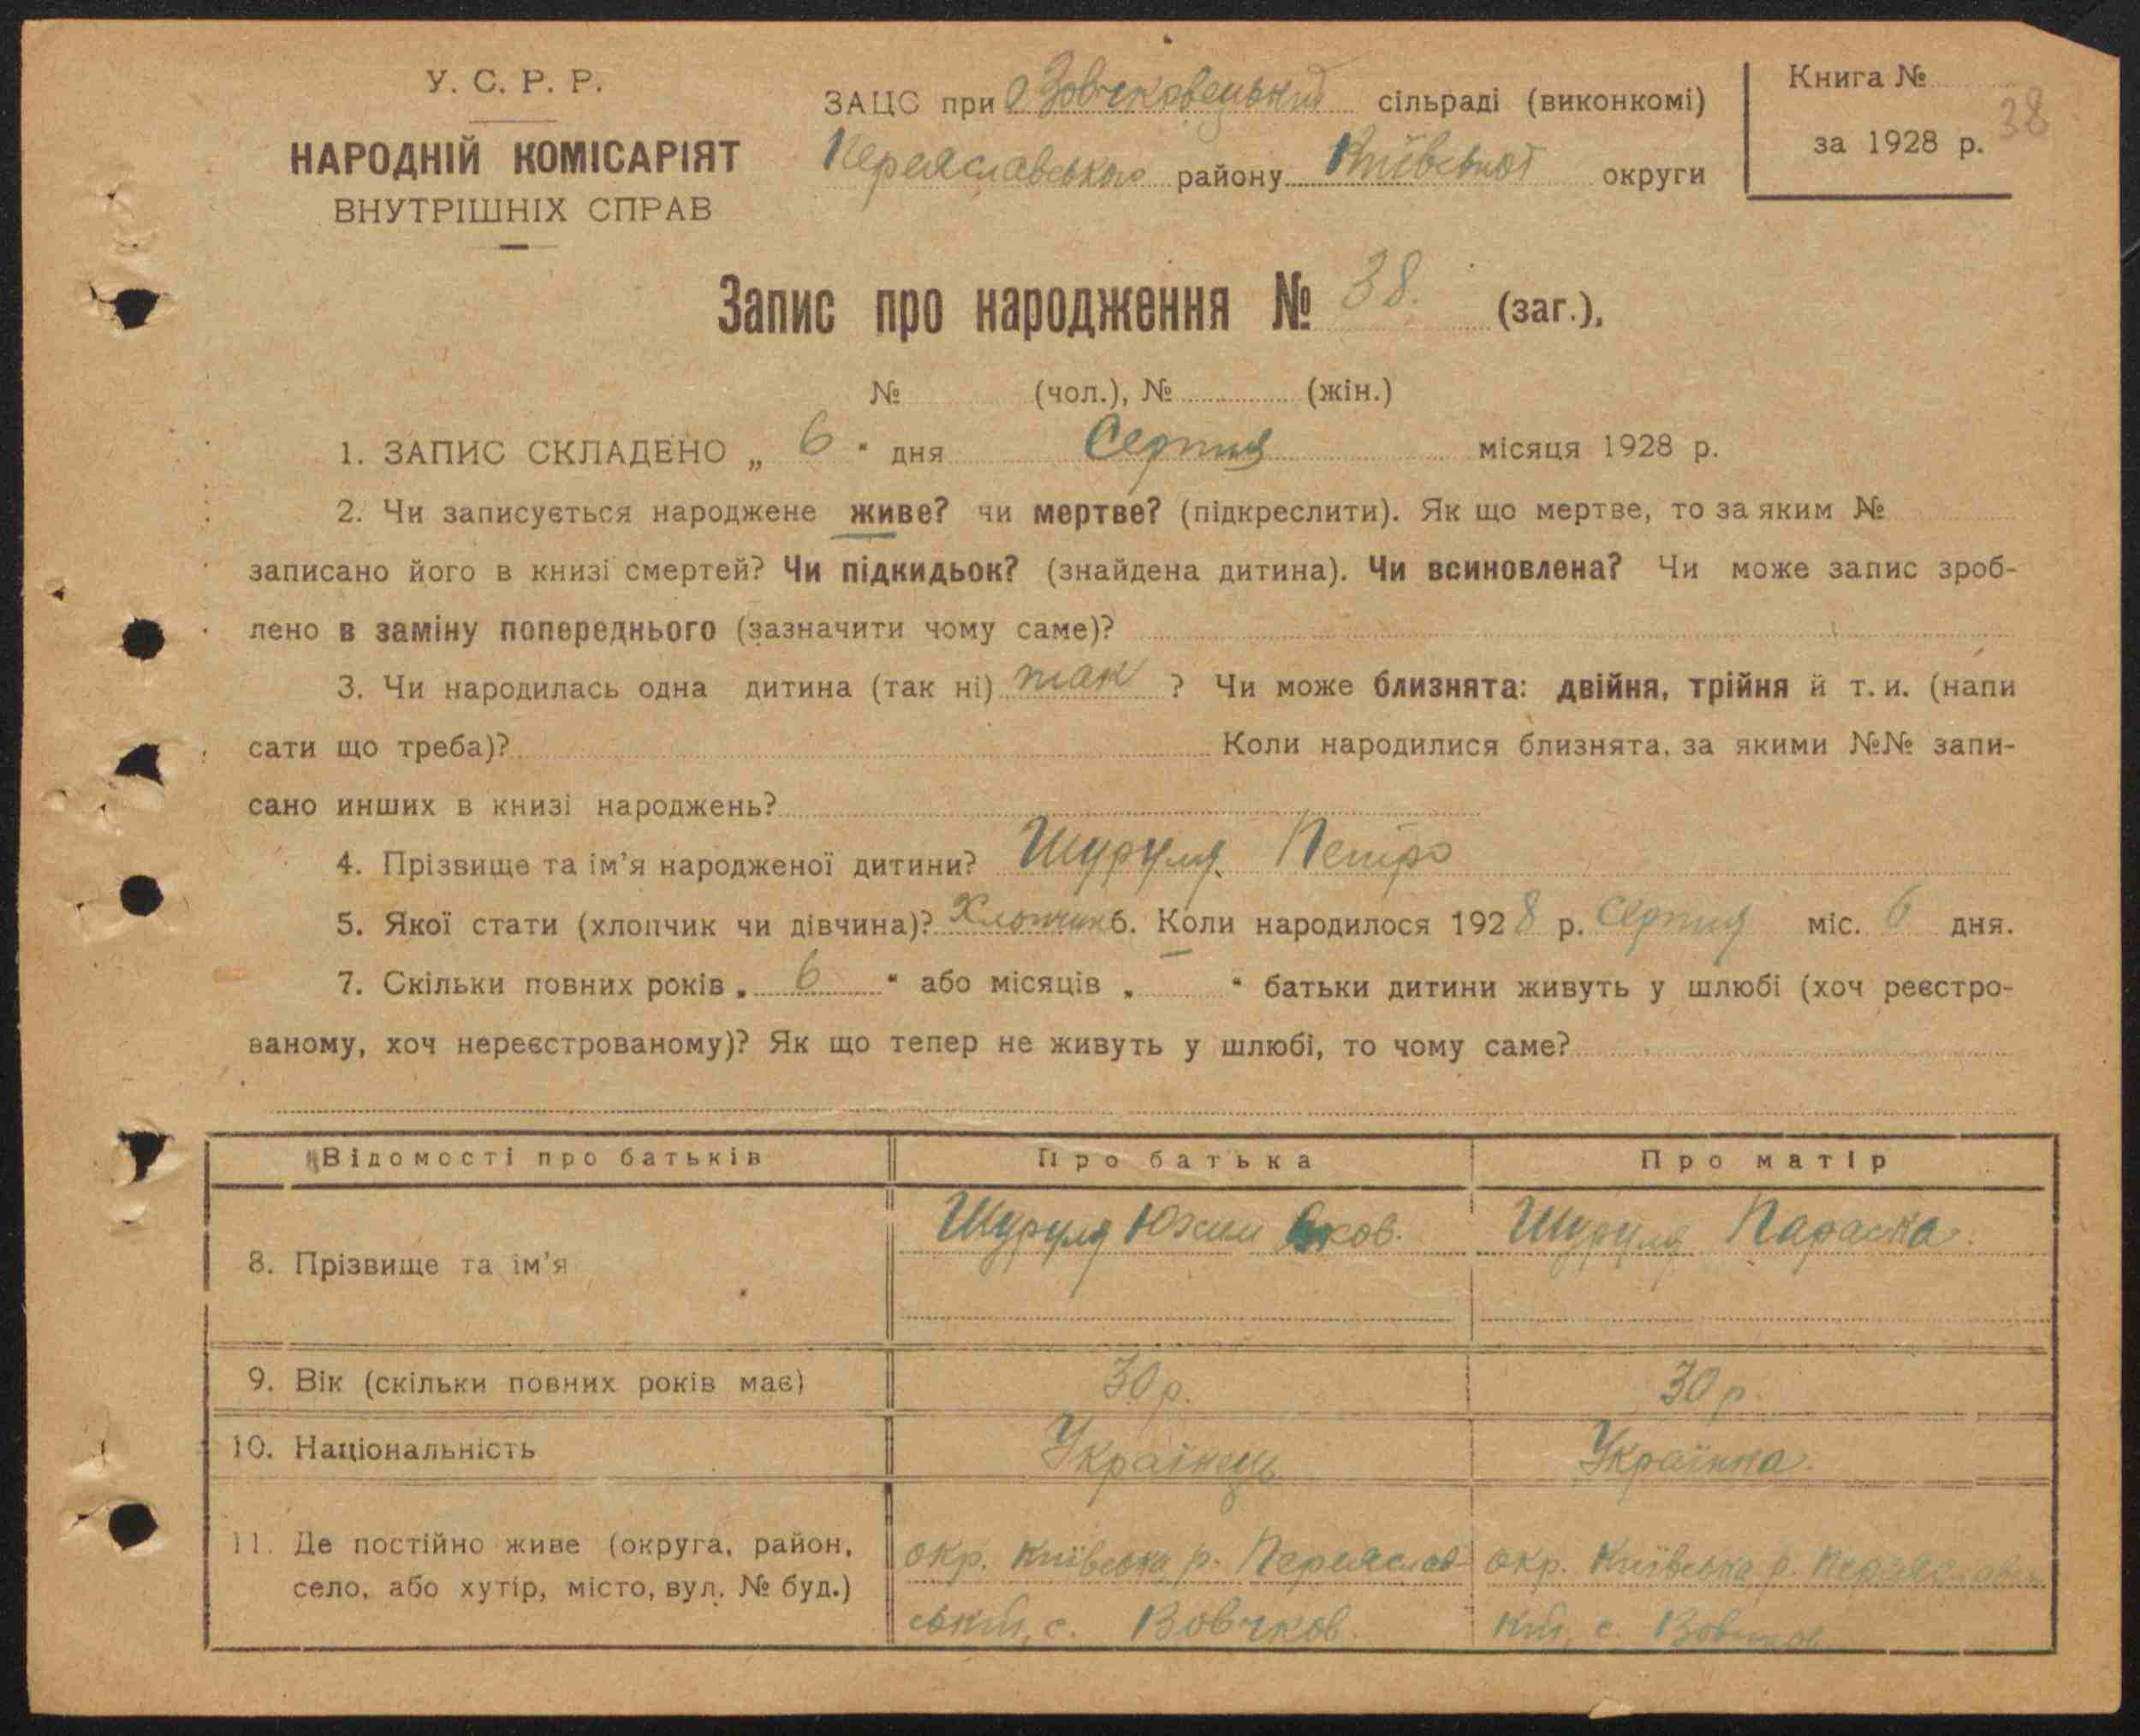 У. С. Р. Р.
НАРОДНІЙ КОМІСАРІЯТ
ВНУТРІШНІХ СПРАВ
ЗАЦС при Вовчковецький сільраді (виконкомі)
Переяславського району Київської округи
Книга №
38
за 1928 р.
Запис про народження № 38. (заг.),
№ (чол.), № (жін.)
1. ЗАПИС СКЛАДЕНО „ 6 “ дня Серпня місяця 1928 р.
2. Чи записується народжене живе? чи мертве? (підкреслити). Як що мертве, то за яким №
записано його в книзі смертей? Чи підкидьок? (знайдена дитина). Чи всиновлена? Чи може запис зроб-
лено в заміну попереднього (зазначити чому саме)?
3. Чи народилась одна дитина (так ні) так ? Чи може близнята: двійня, трійня й т. и. (напи
сати що треба)? Коли народилися близнята, за якими №№ запи-
сано инших в книзі народжень?
4. Прізвище та ім'я народженої дитини? Шуруля Петро
5. Якої стати (хлопчик чи дівчина)? Хлопчик 6. Коли народилося 1928 р. Серпня міс. 6 дня.
7. Скільки повних років „ 6 “ або місяців „ “ батьки дитини живуть у шлюбі (хоч реєстро-
ваному, хоч нереєстрованому)? Як що тепер не живуть у шлюбі, то чому саме?
Відомості про батьків Про батька Про матір
8. Прізвище та ім'я Шуруля Юхим Яков. Шуруля Параска.
9. Вік (скільки повних років має) 30 р. 30 р.
10. Національність Українець Українка.
11. Де постійно живе (округа, район, село, або хутір, місто, вул. № буд.)
окр. Київська р. Переяслав-
ський, с. Вовчков.
окр. Київська р. Переяславсь
кий, с. Вовчков